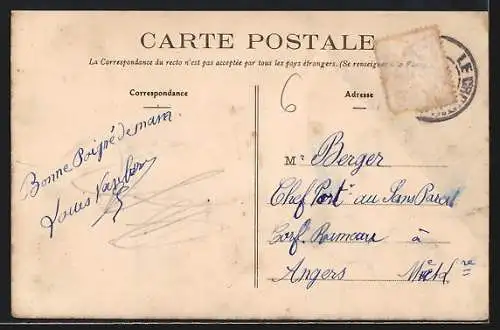 CARTE POSTALE
La Correspondance du recto n'est pas acceptée par tous les pays étrangers. (Se renseigner à la Poste)
Correspondance
Adresse
6
LE
Bonne Poigné de main
Louis
Mr Berger
Chef Port. au Sans Pareil
Rameau à
Angers